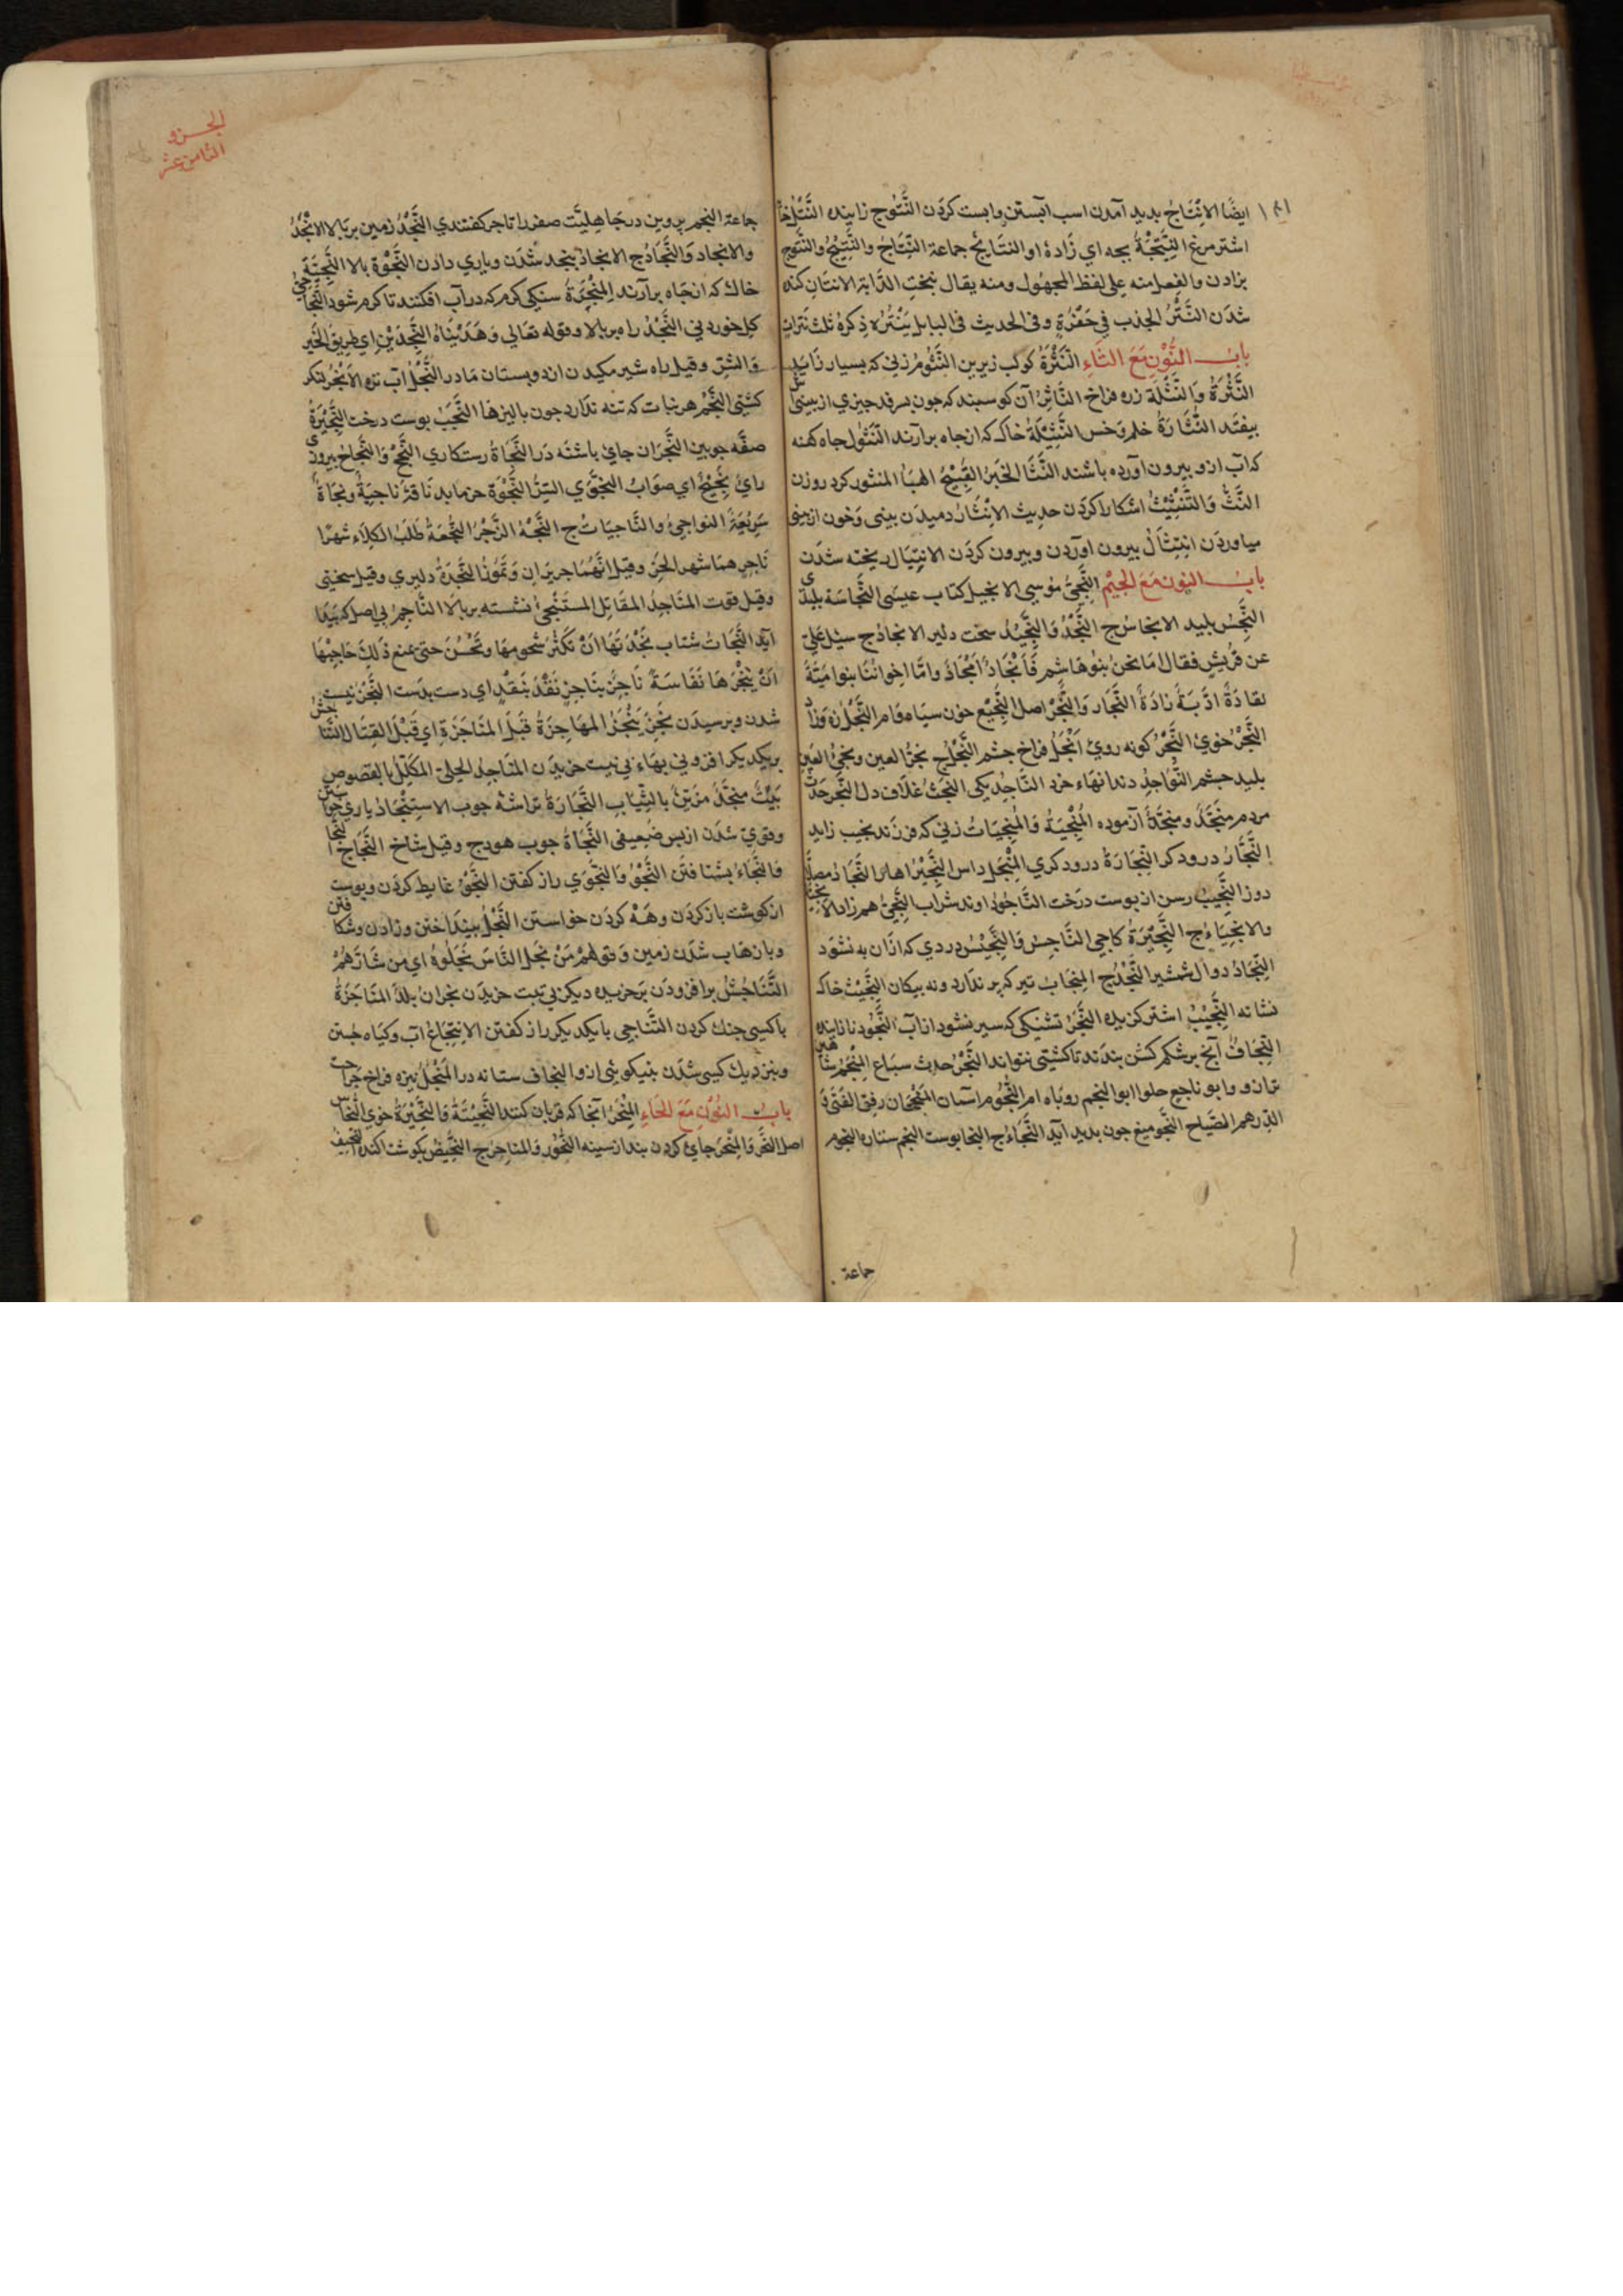 ايضًا الانتاج بديد آمدن اسب آبستن وابست كردن النتوج زاينده
اشتر مرغ النتيجة بجه اي زاده او النتايج جماعة النتاج والنتيج والنتوج
بزادن والفعل منه على لفظ المجهول ومنه يقال نتجت الدابة الانتان كنده
شدن النتر الجذب في حفزة وفي الحديث في البابل ينتر ذكره ثلث نترات
باب النون مع الثاء النثرة كوكب زيرين النثوم زني كه بسيار زايد
النثرة والنثلة زره فراخ الناثر آن كوسبند كه جون بسرفد جيزي از بينيش
بيفتد النثارة خلم وخس النثيلة خاك كه از جاه برآرند النثول جاه كهنه
كه آب ازو بيرون آورده باشند النثا الخبر القبيح الهبا المنثور كرد روزن
النث والتنثيث اشكارا كردن حديث الانثار دميدن بيني وخون از بيني
بيرون اوردن وبيرون كردن الانثيال ريخته شدن
باب النون مع الجيم النجي موسى الانجيل كتاب عيسى النجاسة بليدي
النجس بليد الانجاس ج النجد والنجيد سخت دلير الانجاد ج سئل علي
عن قريش فقال اما نحن بنو هاشم فانجاد امجاد واما اخواننا بنو امية
فقادة ادبة ذادة النجار والنجر اصل النجيع خون سياه فام النجل زه وزاد
النجر خوي النجر كونه روي انجل فراخ جشم النجل ج نجؤ العين ونجئ العين
بليد جشم النواجذ دندانهاء خرد الناجذ يكي النجث غلاف دل
مردم منجذ ومنجذة آزموده المنجبة والمنجبات زني كه فرزند نجيب زايد
النجار درودكر النجارة درودكري المنجل داس
دوز النجيب رسن از بوست درخت الناجود اوند شراب النجي هم راز
والانجية ج النجيرة كاجي الناجس والنجيس دردي كه ازان به نشود
النجاد دوال شمشير النجد ج المنجاب تير كه پر ندارد ونه بيكان النجيث خاك
نشانه النجيب اشتر كزيده النجر تشنكي كه سير نشود از آب
النجاف آنج بر شكم كشن بندند تا كشتي نتواند
ترازو وابو ناجع حلوا ابو النجم روباه ام النجوم آسمان
الدرهم الصلح النجو ميغ جون بديد آيد النجاء ج النجا بوست النجم ستاره النجوم
جماعة
الجزو
الثامن عشر
جماعة النجم پروين در جاهليت صفر را ناجر كفتندي النجد زمين بر بالا الانجد
والانجاد والنجاد ج الانجاد بنجد شدن وياري دادن النجوة بالا
خاك كه از جاه برآرند المنجرة سنكي كرم كه در آب افكنند تا كرم شود
كل خوردني النجد راه بر بالا وقوله تعالى وهديناه النجدين اي طريق الخير
والشر وقيل راه شير مكيدن از دو بستان مادر النجل آب تره الانجر لنكر
كشتي النجم هر نبات كه تنه ندارد جون باليزها النجب بوست درخت النجيرة
صفه جوبين النجران جاي باشنه در النجاة رستكاري النجح والنجاح بيروزي
راي نجيح اي صواب النجوى السر النجوة حرما بد ناقة ناجية ونجاة
سريعة النواجي والناجيات ج النجه الزجر النجعة طلب الكلاء شهرا
ناجر هما شهر الحر وقيل انهما حزيران وتموز النجدة دليري وقيل سختي
وقيل قوت المناجد المقاتل المستنجي نشسته بر بالا الناجم بي اصل كه بيدا
آيد النجات شتاب نجدتها ان تكثر شحومها وتحسن حتى يمنع ذلك صاحبها
ان ينحرها نفاسة ناجز بناجز نقد بنقد اي دست بدست النجز نيست
شدن وبرسيدن نجز ينجز المهاجزة قبل المناجزة اي قبل القتال التناجش
بر يكديكر افزوني بهاء بي نيت خريدن المناجد الحلي المكلل بالفصوص
بيت منجد مزين بالثياب النجارة تراشه جوب الاستنجاد ياري خواستن
وقوي شدن از بس ضعيفي النجاة جوب هودج وقيل شاخ
والنجاء بشتافتن النجو والنجوى راز كفتن النجو غايط كردن وبوست
از كوشت باز كردن وهه كردن خواستن النجل بينداختن وزادن وشكافتن
وبا زهاب شدن زمين وقولهم من نجل الناس نجلوه اي من شارهم
التناجش برافزودن بر خريده ديكر بي نيت خريدن نجران بلد المناجزة
با كسي جنك كردن التناجي با يكديكر راز كفتن الانتجاع آب وكياه جستن
وبنزديك كسي شدن بنيكوئي ازو النجاف ستانه در المنجل نيزه فراخ جراحت
باب النون مع الحاء المنحر آنجا كه قربان كنند النحيتة والنحيزة خوي النحاس
اصل النحر والمنحر جاي كردن بند از سينه النحور والمناحر ج النحيض بكوشت اكنده